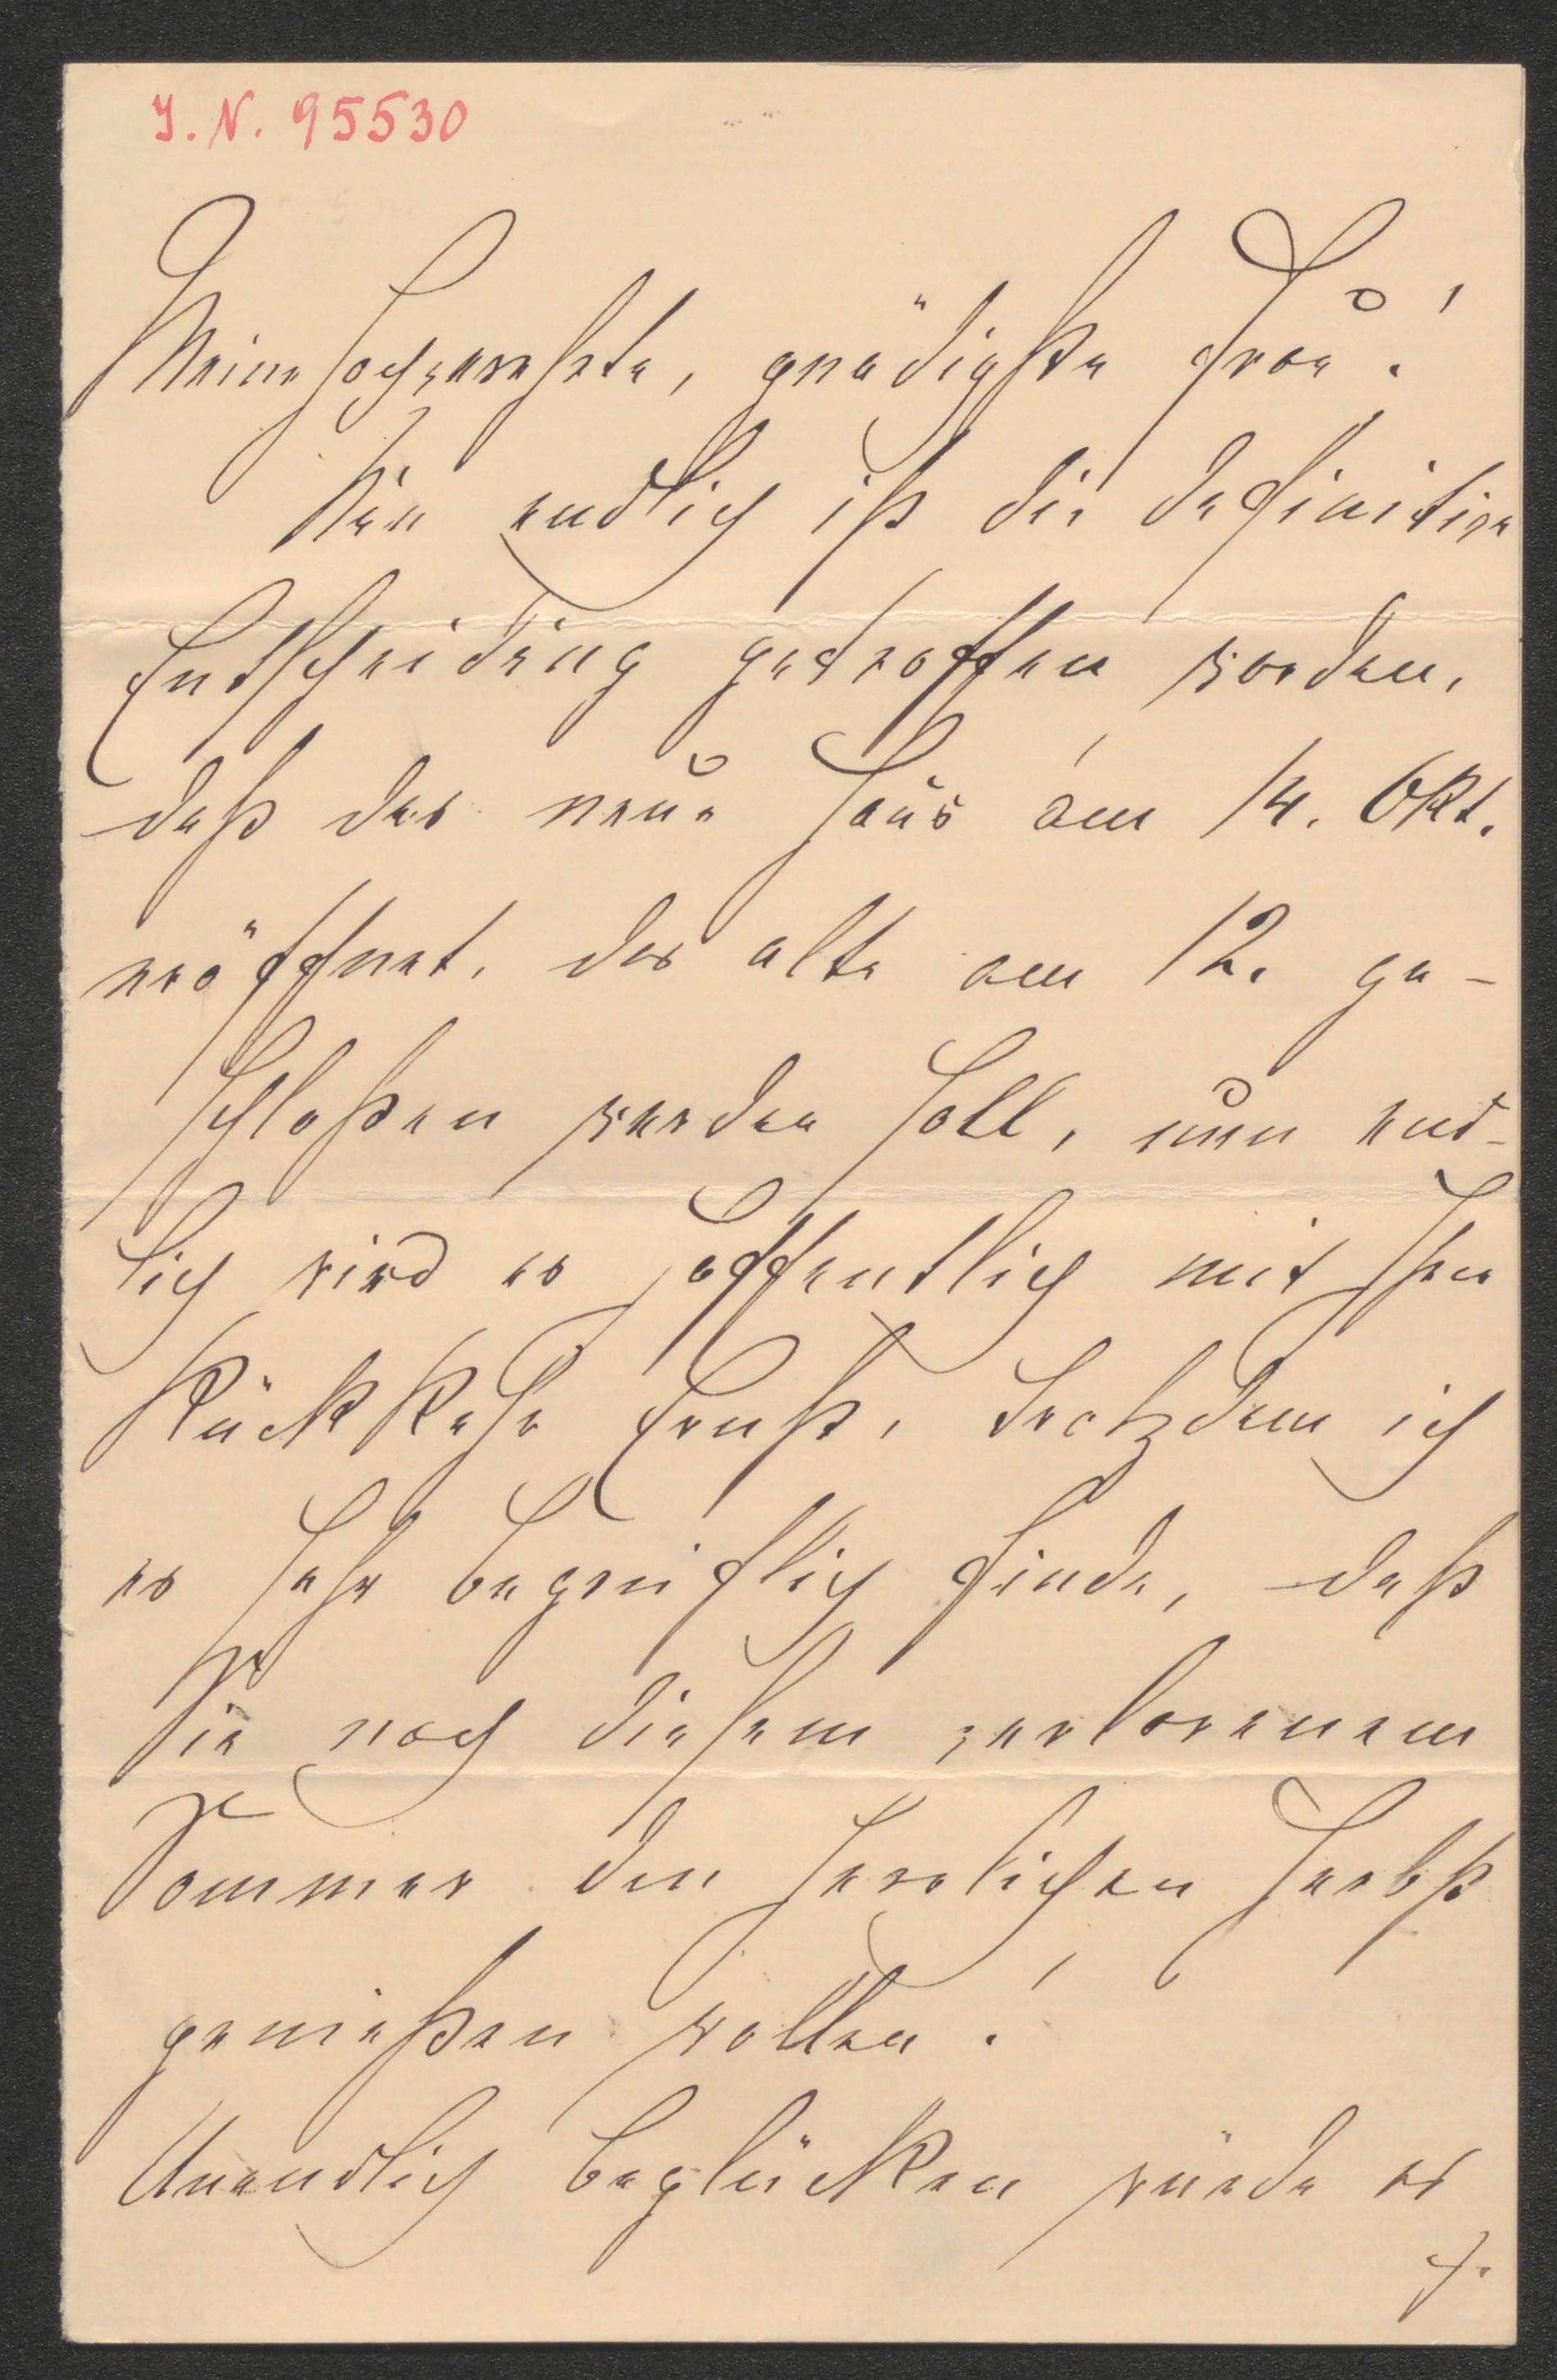 I. N. 95530
Meine hochverehrte, gnädigste Frau!
Nun endlich ist die definitive
Entscheidung getroffen worden,
daß das neue Haus am 14. Okt.
eröffnet, das alte am 12. ge-
schloßen werden soll, nun end-
lich wird es hoffentlich mit Ihrer
Rückkehr Ernst, trotzdem ich
es sehr begreiflich finde, daß
Sie nach diesem verlorenem
Sommer den herrlichen Herbst
genießen wollen!
Unendlich beglücken würde es